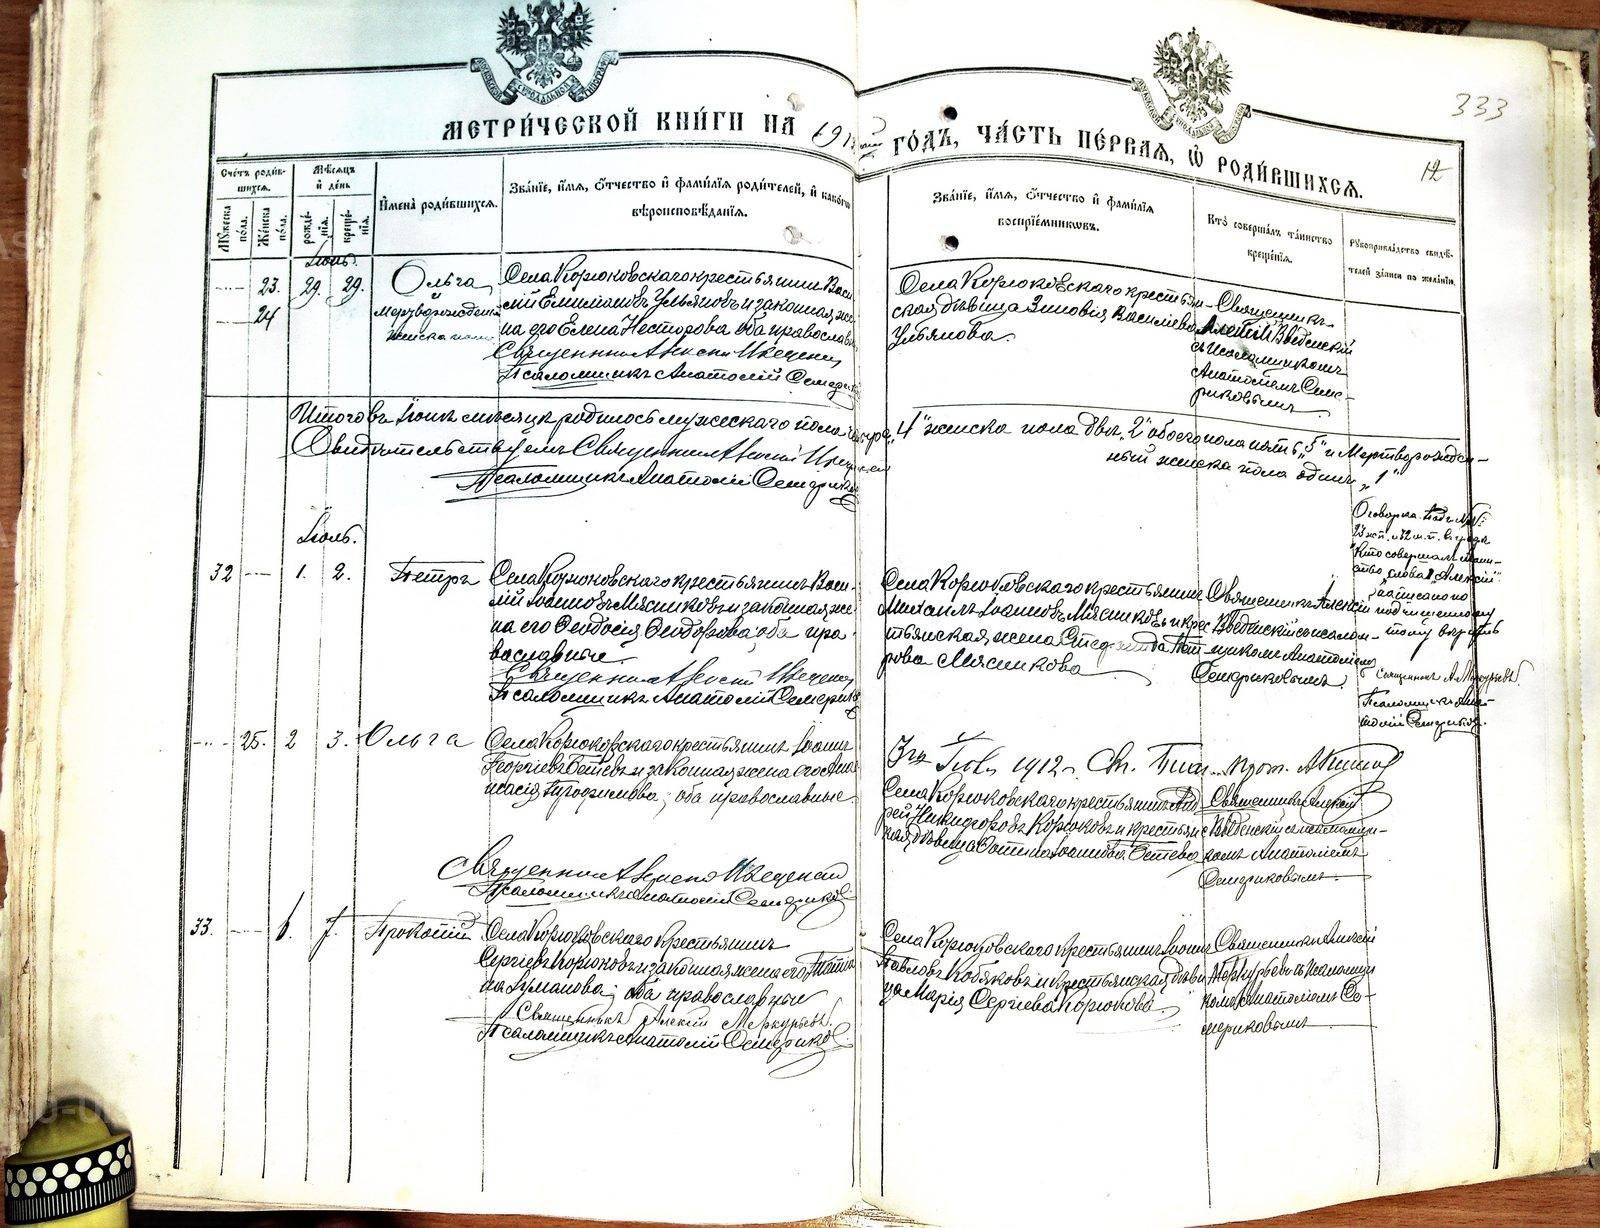 333
МЕТРИЧЕСКОЙ КНИГИ НА 191 ГОДЪ, ЧАСТЬ ПЕРВАЯ, Ѡ РОДИВШИХСЯ.
12
Счетъ родив-
шихся.
Мѣсяцъ
и день
Мужеска пола.
Женска пола.
рожденія.
крещенія.
Имена родившихся.
Званіе, имя, отчество и фамилія родителей, и какого
вѣроисповѣданія.
Званіе, имя, отчество и фамилія
воспріемниковъ.
Кто совершалъ таинство
крещенія.
Рукоприкладство свидѣ-
телей записи по желанію.
Іюнь.
23. 29. 29. Ольга
24
и
Мертворожденный
женска пола
Села Корюковскаго крестьянинъ Васи-
лій Ульяновъ и законная же-
на его Елена Несторова оба православны
Священникъ Алексій Введенскій
Псаломщикъ Анатолій Семериковъ
Села Корюковскаго крестьян-
ская дѣвица Зиновія Василіева
Ульянова.
Священникъ
Алексій Введенскій
съ псаломщикомъ
Анатоліемъ Семе-
риковымъ
Итого въ Іюнѣ мѣсяцѣ родилось мужескаго пола „4“ женска пола два „2“ обоего пола „5“ и Мертворожден-
ный женска пола одинъ „1“
Свидѣтельствуемъ Священникъ Алексій Введенскій
Псаломщикъ Анатолій Семериковъ
Іюль.
32 1. 2. Петръ
Села Корюковскаго крестьянинъ Васи-
лій Іоанновъ Мясниковъ и законная же-
на его Ѳеодосія Ѳеодорова; оба пра-
вославные.
Священникъ Алексій Введенскій
Псаломщикъ Анатолій Семериковъ
Села Корюковскаго крестьянинъ
Михаилъ Іоанновъ Мясниковъ и крес-
тьянская жена Пет-
рова Мясникова
Священникъ Алексій
Введенскій съ псалом-
щикомъ Анатоліемъ
Семериковымъ.
Оговорка.
"Кто совершалъ таин-
ство" слова "Алексій"
написано по
подчищенному
Священникъ А. Меркурьевъ.
Псаломщикъ Ана-
толій Семериковъ.
25. 2 3. Ольга
Села Корюковскаго крестьянинъ Іоаннъ
Георгіевъ и законная жена его Ана-
стасія; оба православные.
Священникъ Алексій Введенскій
Псаломщикъ Анатолій Семериковъ
1912 г.
Села Корюковскаго крестьянинъ Анд-
рей Никифоровъ Корюковъ и крестьянс-
кая дѣвица Іоаннова
Священникъ Алексій
Введенскій съ псаломщи-
комъ Анатоліемъ
Семериковымъ.
33. 6. 7. Прокопій
Села Корюковскаго крестьянинъ
Сергіевъ Корюковъ и законная жена его Татіа-
на; оба православные
Священникъ Алексій Меркурьевъ.
Псаломщикъ Анатолій Семериковъ
Села Корюковскаго крестьянинъ Іоаннъ
Павловъ Кобяковъ и крестьянская дѣви-
ца Марія Сергіева Корюкова.
Священникъ Алексій
Меркурьевъ съ псаломщи-
комъ Анатоліемъ Се-
мериковымъ